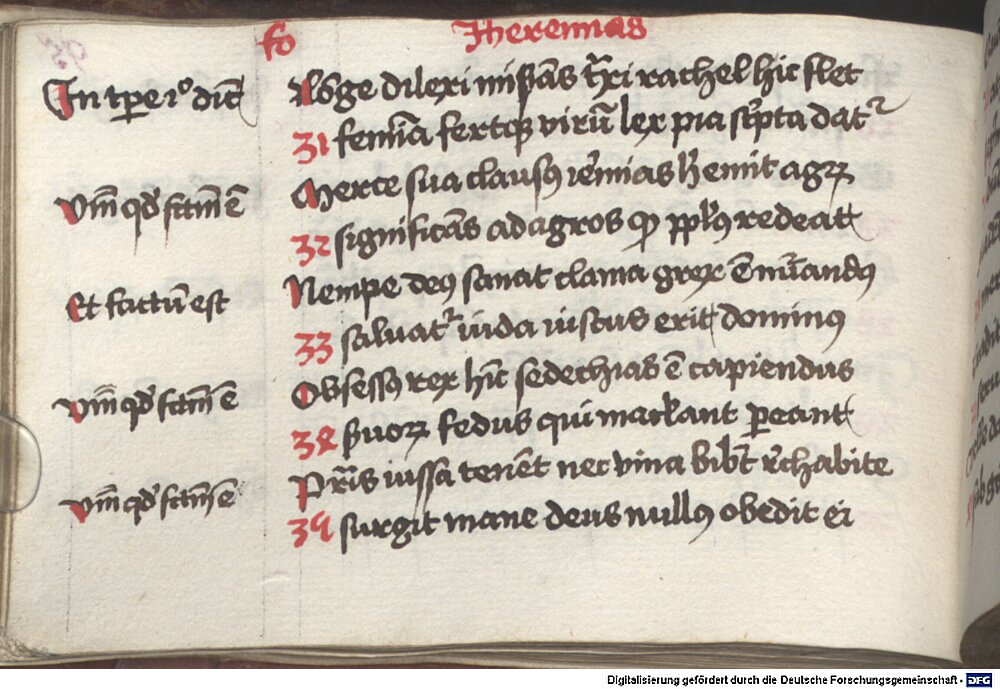 fo Jheremias
In tpe i° dic̄ Lōge dilexi misr̄ans
rachel hic flet
31 femīa fertq̄ virū lex pia sc̄pta dat᷑
Vm̄ qd̓ fctm̄ ē Merce sua clausꝯ
hic emit agꝝ
32 significās ad agros ꝙ pplꝯ redeat
Et factū est Nempe deꝯ sanat clama grex
33 saluat᷑ iuda iustus erit dominꝯ
Vm̄ qd̓ fctm̄ ē Obsessꝯ rex hīc sedechias ē capiendus
34 ẜuoꝝ fedus qui mactant ꝑeant
Vm̄ qd̓ fctm̄ ē Pr̄is iussa tenēt nec vina bibūt rechabite
35 surgit mane deus nullꝯ obedit ei
Digitalisierung gefördert durch die Deutsche Forschungsgemeinschaft - DFG